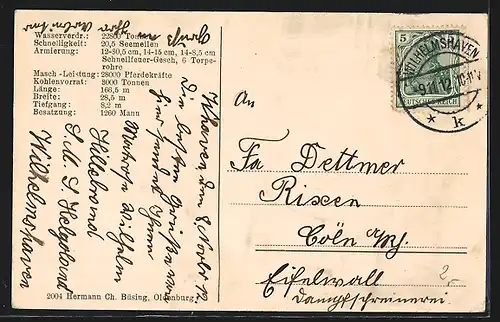 Wasserverdr.: 22800 Tonnen
Schnelligkeit: 20,5 Seemeilen
Armierung: 12-30,5 cm, 14-15 cm, 14-8,5 cm
Schnellfeuer-Gesch, 6 Torpe-
rohre
Masch.-Leistung: 28000 Pferdekräfte
Kohlenvorrat: 3000 Tonnen
Länge: 166,5 m
Breite: 28,5 m
Tiefgang: 8,2 m
Besatzung: 1260 Mann
Whaven den 8 Novbr 12
Die besten Grüße von
hier sendet Ihnen
Matrose Wilhelm
Hillebrand
S. M. S. Helgoland
Wilhelmshaven
Gruß
Ihre
2004 Hermann Ch. Büsing, Oldenburg
5
DEUTSCHES REICH
WILHELMSHAVEN
9.11.12
* k *
An
Fa Dettmer
Rixen
Cöln a/Rh.
Eifelwall
Dampfschreinerei
2,-